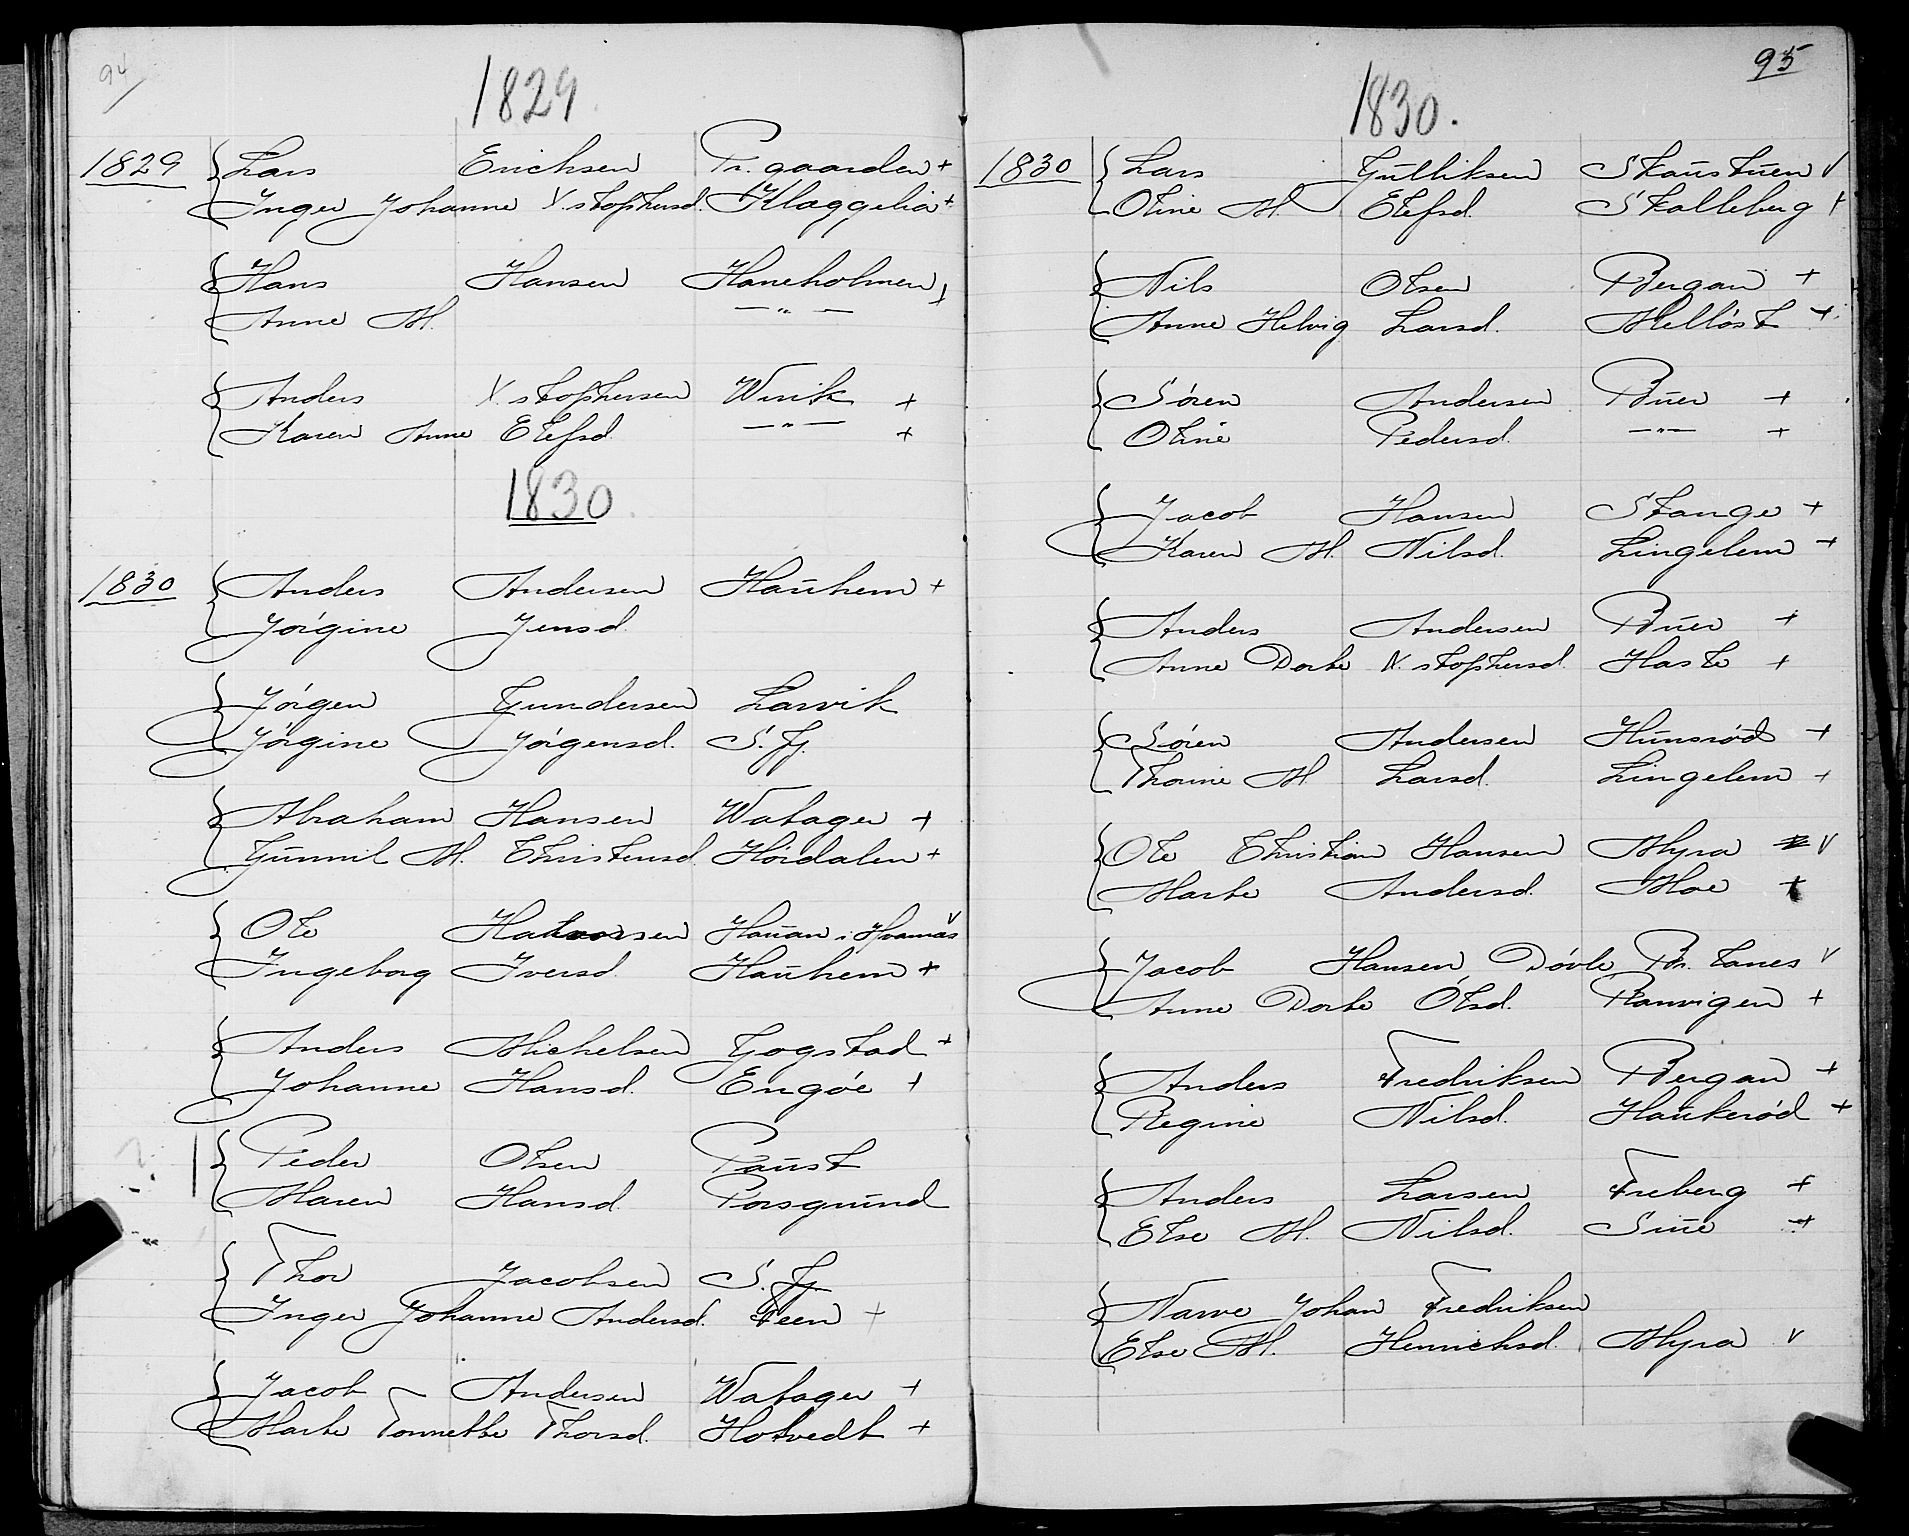 94
1829
1829 Lars Erichsen Pr. gaarden +
Inger Johanne X.stophersd. Klaggelia +
Hans Hansen Haneholmen +
Anne M. — „ —
Anders X.stophersen Wirik +
Karen Anne Elefsd. — „ — +
1830.
1830 Anders Andersen Hauhem +
Jørgine Jensd.
Jørgen Gundersen Larvik
Jørgine Jørgensd. S. Fj.
Abraham Hansen Watager +
Gunnil M. Christensd. Høidalen +
Ole Halvorsen Hauan i Hvarnæs v
Ingeborg Iversd. Hauhem +
Anders Michelsen Gogstad +
Johanne Hansd. Engøe +
Peder Olsen Paust
Maren Hansd. Porsgrund
Thor Jacobsen S. Fj
Inger Johanne Andersd. Feen +
Jacob Andersen Watager +
Marte Tonnette Thorsd. Hotvedt +
95
1830.
1830 Lars Gulliksen Skaustuen v
Oline M. Elefsd. Skalleberg +
Nils Olsen Bergan +
Anne Helvig Larsd. Melløst +
Søren Andersen Buer +
Oline Pedersd. — „ — +
Jacob Hansen Stange +
Karen M. Nilsd. Lingelem +
Anders Andersen Buer +
Anne Dorte X.stophersd. Hasle +
Søren Andersen Hunsrød +
Thorine M Larsd. Lingelem +
Ole Christian Hansen Myra v
Marte Andersd. Moe +
Jacob Hansen Døvle Br. lanes v
Anne Dorte Olsd. Ranvigen +
Anders Fredriksen Bergan +
Regine Nilsd. Haukerød +
Anders Larsen Freberg +
Else M. Nilsd. Sme +
Narve Johan Fredriksen
Else M. Henrichsd. Myra v